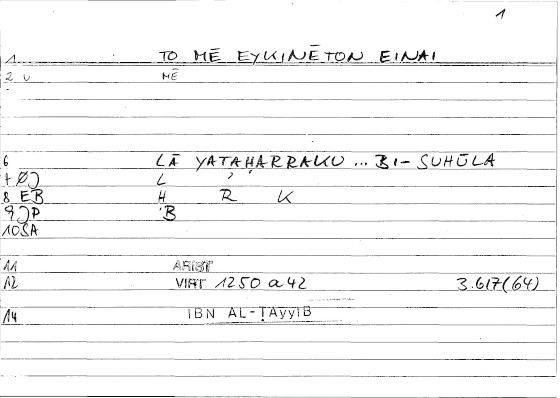 1
1 TO MĒ EYKINĒTON EINAI
2 U MĒ
6 LĀ YATAḤARRAKU ... BI-SUHŪLA
7 ØJ L ʾ
8 EB H R K
9 JP B
10 SA
11 ARIST
12 VIRT 1250 a 42 3.617(64)
14 IBN AL-ṬAyyIB